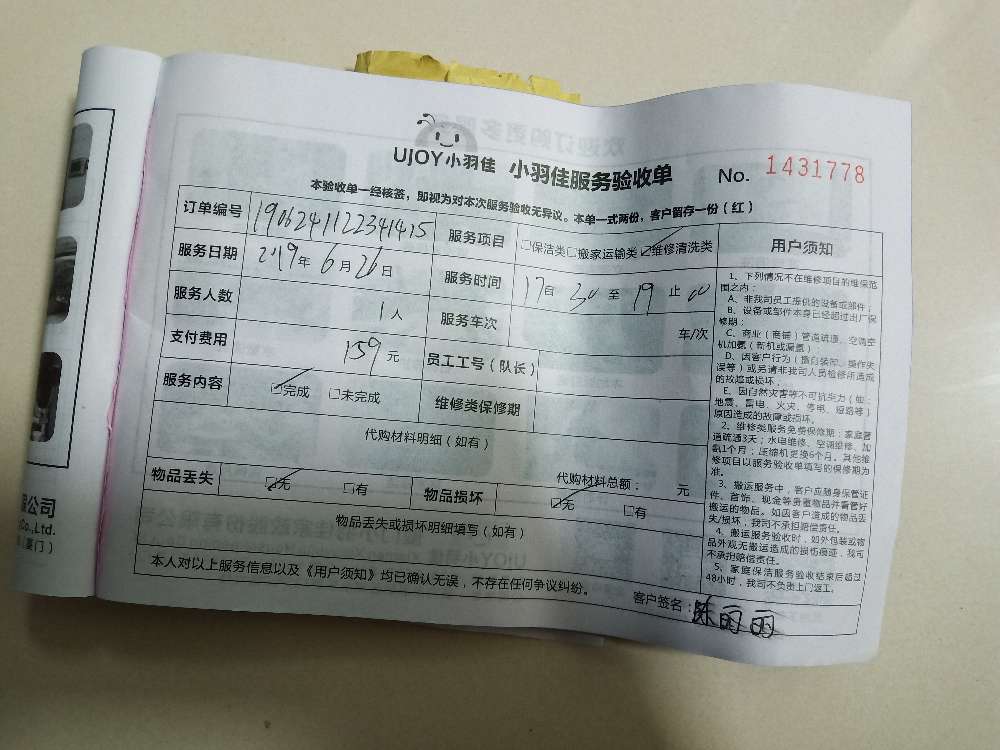 UJOY小羽佳 小羽佳服务验收单 No. 1431778
本验收单一经核签，即视为对本次服务验收无异议。本单一式两份，客户留存一份（红）
订单编号 1906241122341415 服务项目 □保洁类□搬家运输类☑维修清洗类
服务日期 2019年6月26日 服务时间 17自30至19止00
服务人数 1人 服务车次 车/次
支付费用 159元 员工工号（队长）
服务内容 ☑完成 □未完成 维修类保修期
代购材料明细（如有）
代购材料总额： 元
物品丢失 ☑无 □有 物品损坏 ☑无 □有
物品丢失或损坏明细填写（如有）
本人对以上服务信息以及《用户须知》均已确认无误，不存在任何争议纠纷。
客户签名：陈丽丽
用户须知
1、下列情况不在维修项目的维保范
围之内：
A、非我司员工提供的设备或部件；
B、设备或部件本身已经超过出厂保
修期；
C、商业（商铺）管道疏通、空调空
机加氟（新机或漏氟）
D、因客户行为（擅自装卸、操作失
误等）或另请非我司人员检修所造成
的故障或损坏；
E、因自然灾害等不可抗力（如：
地震、雷电、火灾、停电、短路等）
原因造成的故障或损坏。
2、维修类服务免费保修期：家庭管
道疏通3天；水电维修、空调维修、加
氨1个月；压缩机更换6个月。其他维
修项目以服务验收单填写的保修期为
准。
3、搬运服务中，客户应随身保管证
件、首饰、现金等贵重物品并看管好
搬运的物品。如因客户造成的物品丢
失/损坏，我司不承担赔偿责任。
4、搬运服务验收时，如外包装或物
品外观无搬运造成的损伤痕迹，我司
不承担赔偿责任。
5、家庭保洁服务验收结束后超过
48小时，我司不负责上门返工。
限公司
Co.,Ltd.
厦门）